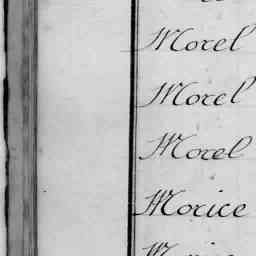 Morel
Morel
Morel
Morice